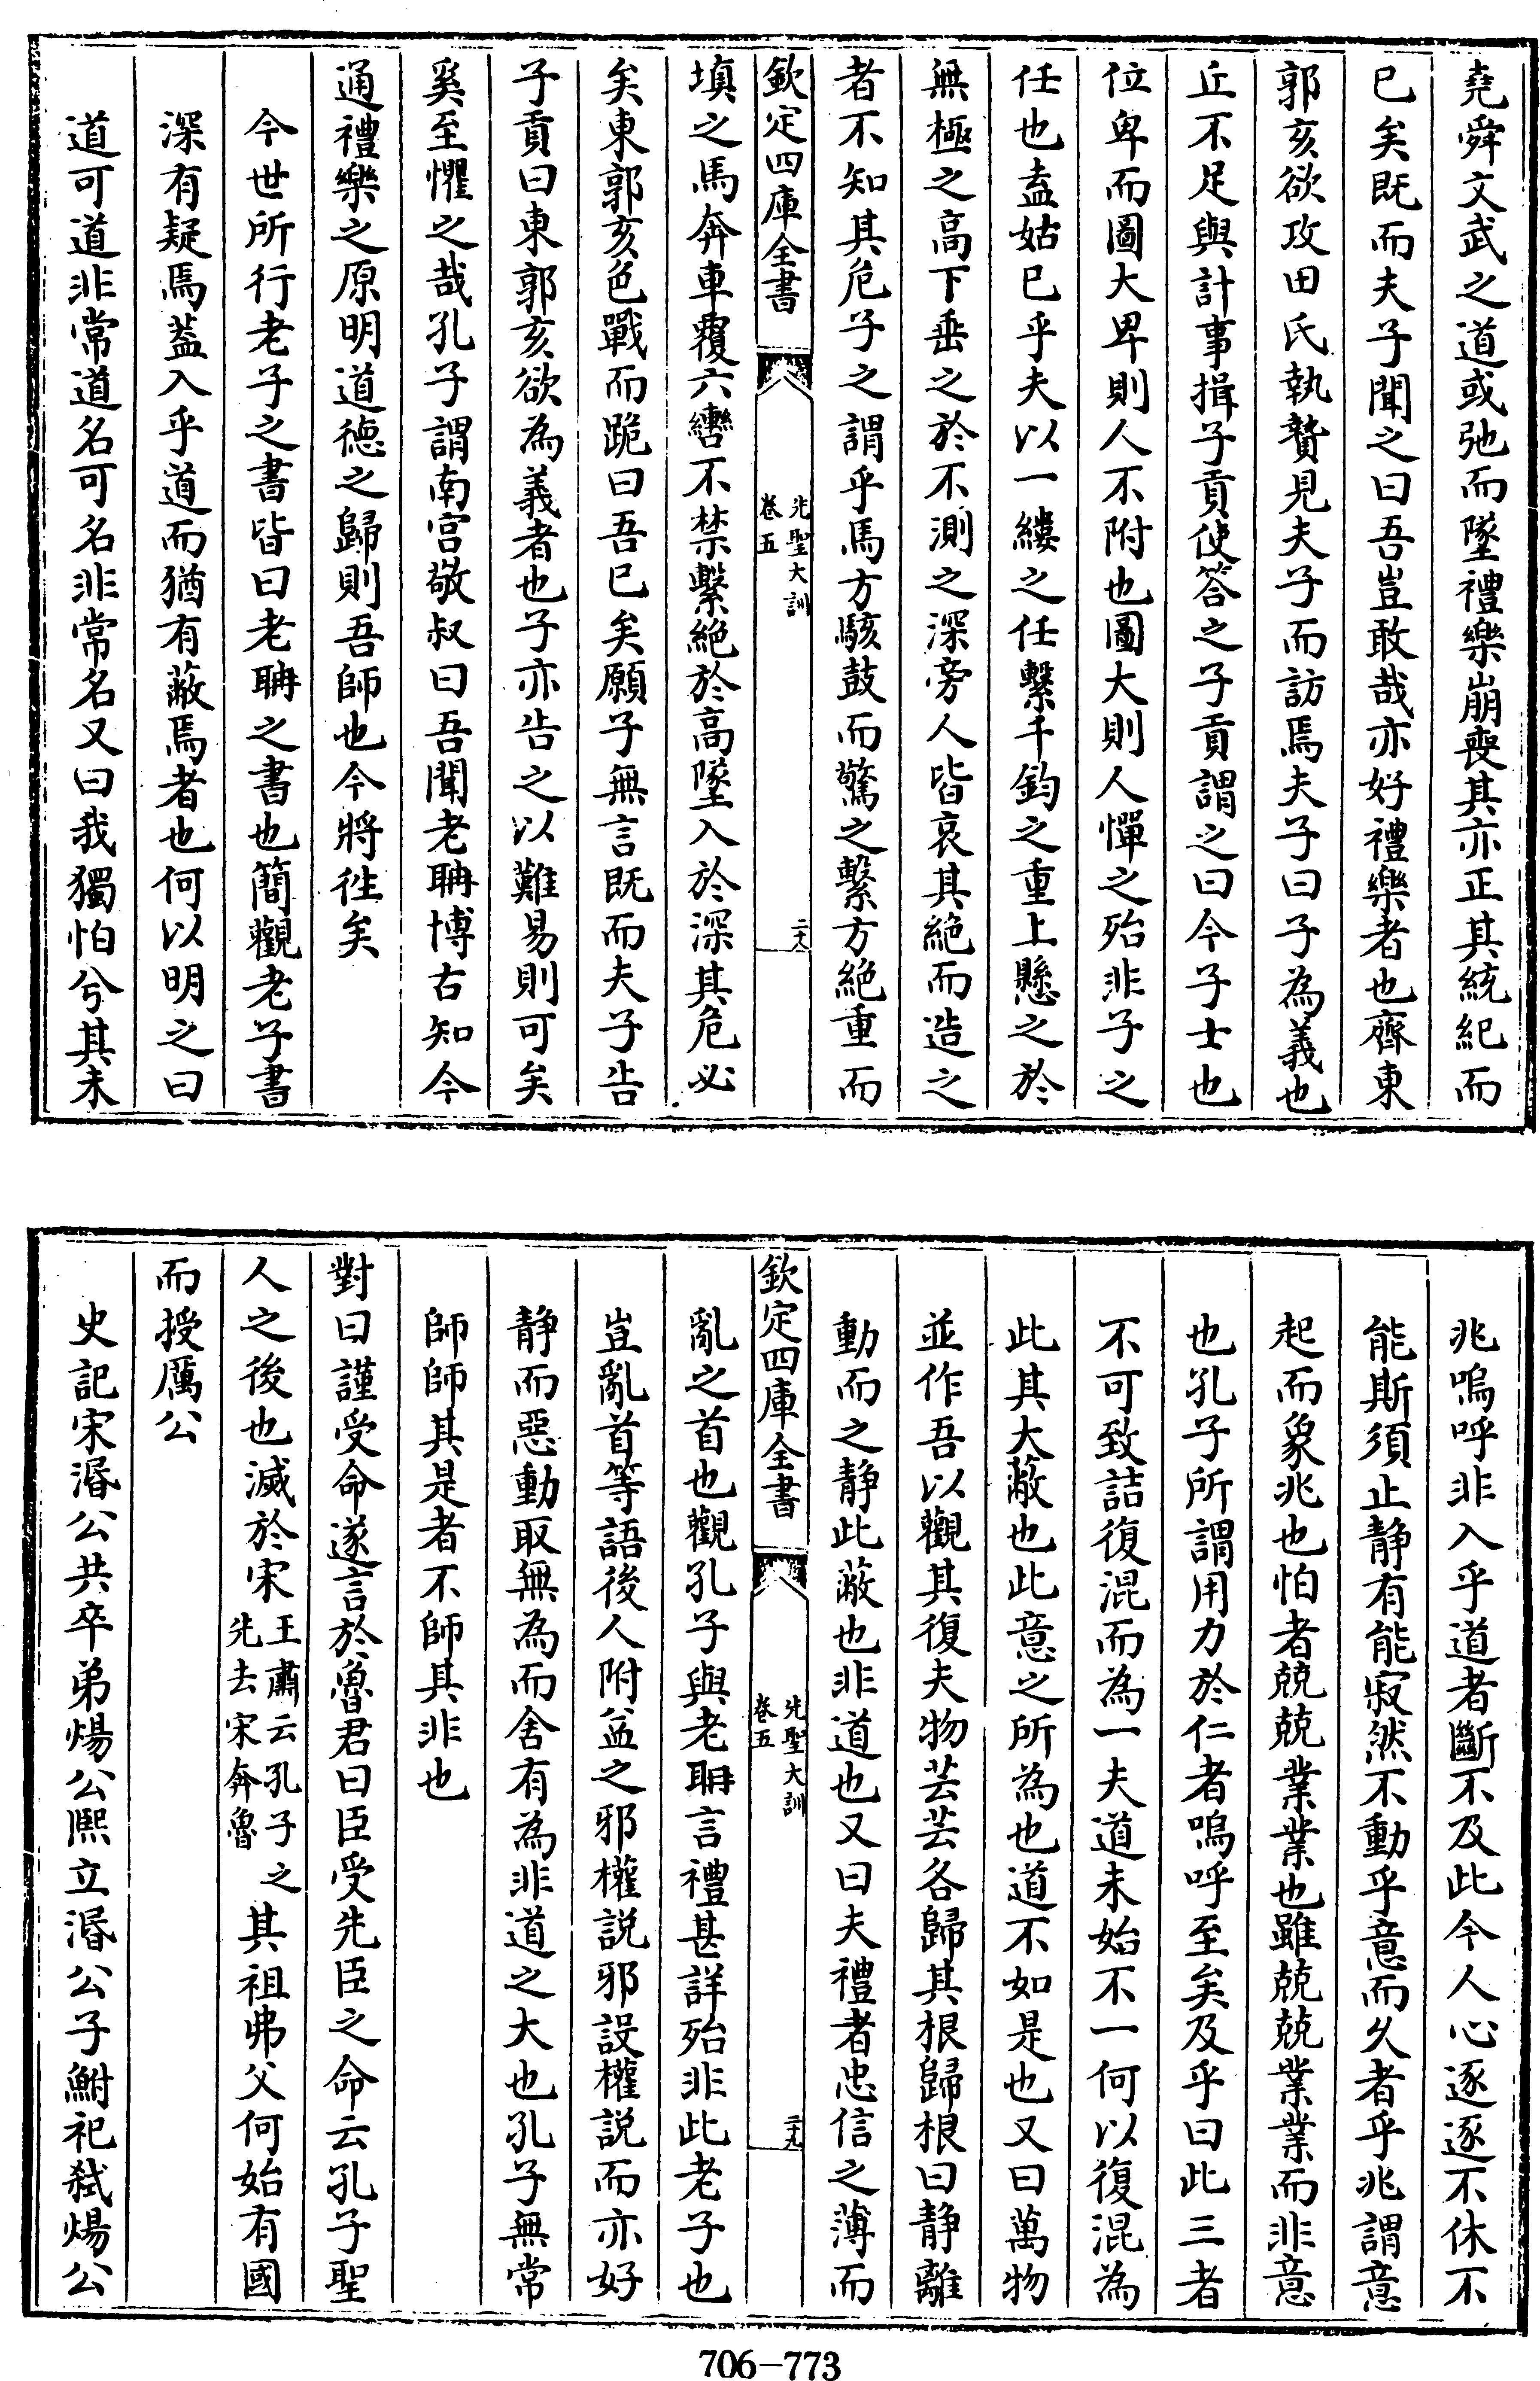 堯舜文武之道或弛而墜禮樂崩喪其亦正其統紀而
已矣既而夫子聞之曰吾豈敢哉亦好禮樂者也齊東
郭亥欲攻田氏執贄見夫子而訪焉夫子曰子為義也
丘不足與計事揖子貢使答之子貢謂之曰今子士也
位卑而圖大卑則人不附也圖大則人憚之殆非子之
任也盍姑已乎夫以一縷之任繫千鈞之重上懸之於
無極之高下垂之於不測之深旁人皆哀其絶而造之
者不知其危子之謂乎馬方駭鼓而驚之繫方絶重而
欽定四庫全書
先聖大訓
卷五
二十八
填之馬奔車覆六轡不禁繫絶於高墜入於深其危必
矣東郭亥色戰而跪曰吾已矣願子無言既而夫子告
子貢曰東郭亥欲為義者也子亦告之以難易則可矣
奚至懼之哉孔子謂南宮敬叔曰吾聞老聃博古知今
通禮樂之原明道德之歸則吾師也今將徃矣
今世所行老子之書皆曰老聃之書也簡觀老子書
深有疑焉葢入乎道而猶有蔽焉者也何以明之曰
道可道非常道名可名非常名又曰我獨怕兮其未
兆嗚呼非入乎道者斷不及此今人心逐逐不休不
能斯須止静有能寂然不動乎意而久者乎兆謂意
起而象兆也怕者兢兢業業也雖兢兢業業而非意
也孔子所謂用力於仁者嗚呼至矣及乎曰此三者
不可致詰復混而為一夫道未始不一何以復混為
此其大蔽也此意之所為也道不如是也又曰萬物
並作吾以觀其復夫物芸芸各歸其根歸根曰静離
動而之静此蔽也非道也又曰夫禮者忠信之薄而
欽定四庫全書
先聖大訓
卷五
二十九
亂之首也觀孔子與老聃言禮甚詳殆非此老子也
豈亂首等語後人附益之邪權説邪設權説而亦好
静而惡動取無為而舍有為非道之大也孔子無常
師師其是者不師其非也
對曰謹受命遂言於魯君曰臣受先臣之命云孔子聖
人之後也滅於宋王肅云孔子之先去宋奔魯其祖弗父何始有國
而授厲公
史記宋湣公共卒弟煬公熙立湣公子鮒祀弑煬公
706-773